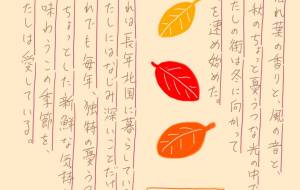 れ葉の香りと、風の音と、
秋のちょっと憂うつな光の中で
たしの街は冬に向かって
を速め始めた。
れは長年北国に暮らしてい
たしにはなみ深いことだけ
れでも毎年、独特の憂うつ
ちょっとした新鮮な気持
味わうこの季節を、
たしは愛している。